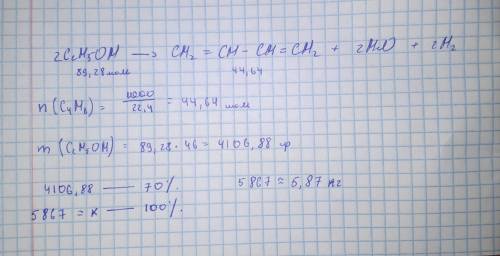 2C₂H₅OH → CH₂ = CH - CH = CH₂ + 2H₂O + H₂
89,28 моль 44,64
n (C₄H₆) = 1000/22,4 = 44,64 моль
m (C₂H₅OH) = 89,28 · 46 = 4106,88 гр
4106,88 — 70%. 5867 ≈ 5,87 кг
5867 = x — 100%.